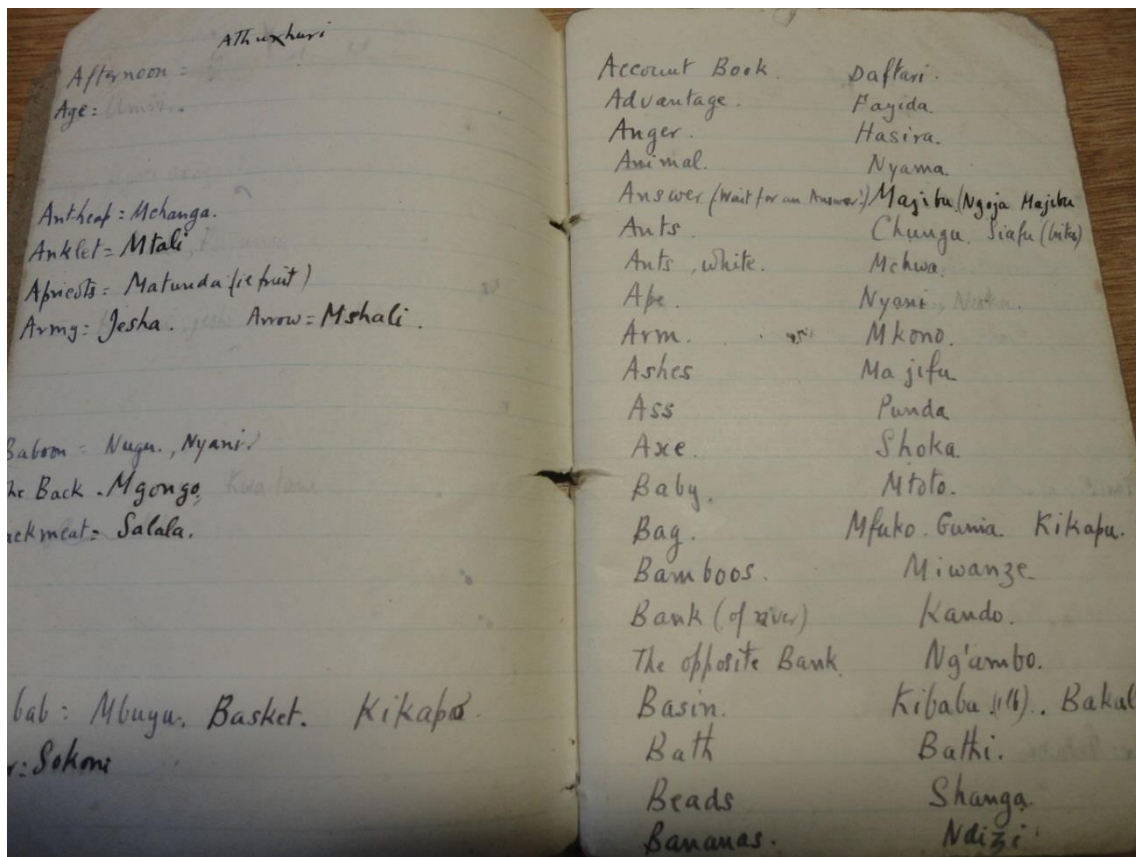 Athuxhuri
Afternoon =
Age: Umri.
Antheap = Mchanga.
Anklet = Mtali,
Apricots = Matunda (ie fruit)
Army = Jesha. Arrow = Mshali.
Baboon = Nugu., Nyani.
The Back - Mgongo,
ackmeat = Salala.
bab: Mbuyu. Basket. Kikapo.
r: Sokoni
Account Book Daftari.
Advantage. Fayida.
Anger. Hasira.
Animal. Nyama
Answer. (Wait for an Answer.) Majibu (Ngoja Majibu
Ants Chungu. Siafu (bites)
Ants, white. Mchwa.
Ape. Nyani,
Arm. Mkono.
Ashes Majifu
Ass Punda
Axe. Shoka.
Baby. Mtoto.
Bag. Mfuko. Gunia. Kikapu.
Bamboos. Miwanze
Bank (of river) Kando.
The opposite Bank. Ng'ambo.
Basin. Kibaba (1lb). Bakul
Bath Bathi.
Beads Shanga.
Bananas. Ndizi